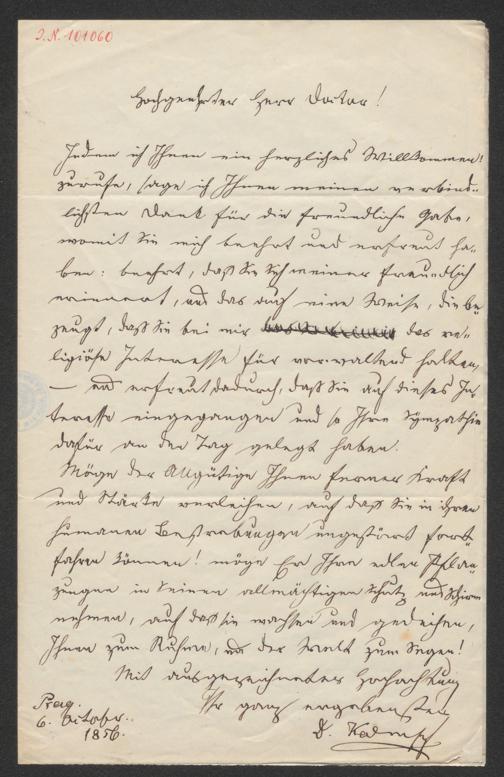 I.N. 101060
Hochgeehrter Herr Doctor!
Indem ich Ihnen ein herzliches Willkommen!
zurufe, sage ich Ihnen meinen verbind-
lichsten Dank für die freundliche Gabe,
womit Sie mich beehrt und erfreut ha-
ben: beehrt, daß Sie sich meiner freundlich
erinnert, und das auf eine Weise, die be-
zeugt, daß Sie bei mir das re-
ligiöse Interesse für vorwaltend halten,
— und erfreut dadurch, daß Sie auf dieses In-
teresse eingegangen und so Ihre Sympathie
dafür an den Tag gelegt haben.
Möge der Allgütige Ihnen ferner Kraft
und Stärke verleihen, auf daß Sie in Ihren
humanen Bestrebungen ungestört fort-
fahren können! möge Er Ihre edlen Pflan-
zungen in Seinen allmächtigen Schutz und Schirm
nehmen, auf daß sie wachsen und gedeihen,
Ihnen zum Ruhme, und der Welt zum Segen!
Mit ausgezeichneter Hochachtung
Ihr ganz ergebenster
Prag.
6. October.
1856.
D.